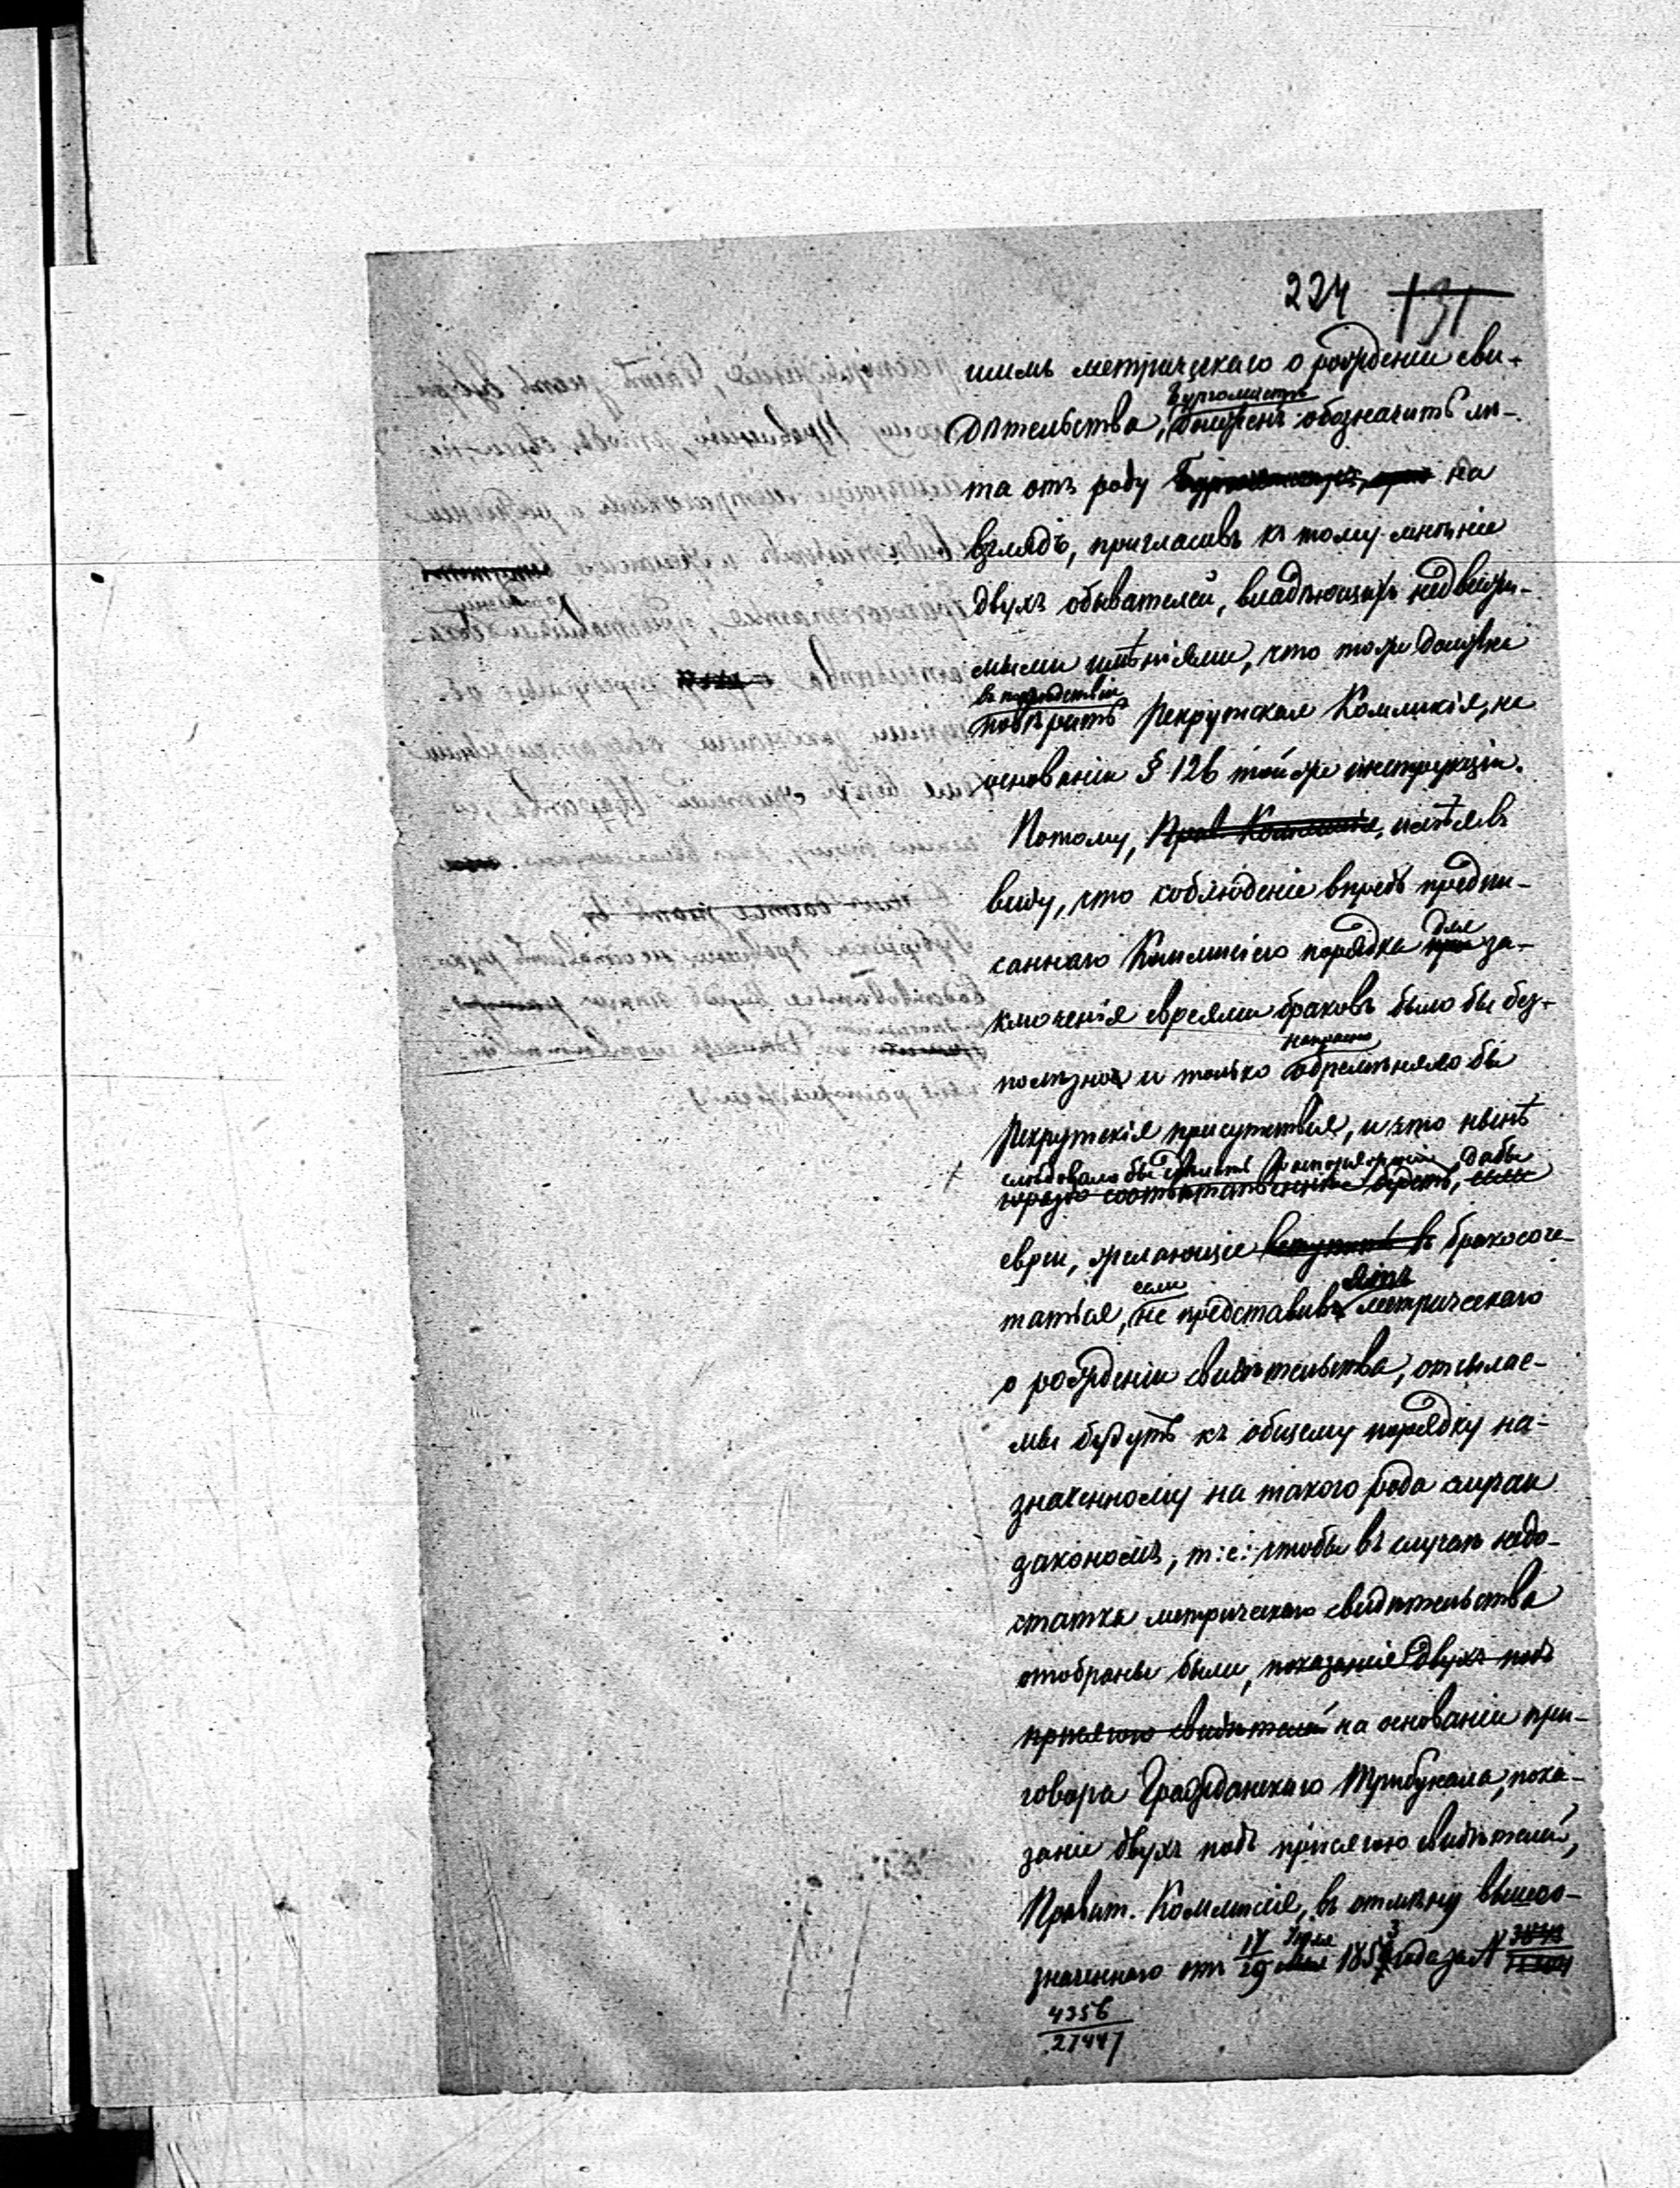 224 131
шимъ метрическаго о рожденіи сви-
Бургомистръ
дѣтельства, долженъ обозначить лѣ-
та отъ роду на
взглядъ, пригласивъ къ тому мнѣніе
двухъ обывателей, владѣющихъ недвижи-
мыми имѣніями, что тоже должна
въ послѣдствіи
повѣрить Рекрутская Коммисія, на
основаніи § 126 той же инструкціи.
Потому, Прав. Коммисія, имѣя въ
виду, что соблюденіе впредь предпи-
для
саннаго Коммисіею порядка при за-
ключенія евреями браковъ было бы без-
напрасно
полѣзно и только обременяло бы
Рекрутскія присутствія, и что нынѣ
слѣдовало бы сдѣлать распоряженіе, дабы
гораздо соотвѣтственнѣе будетъ, если
евреи, желающіе вступить въ бракосоче-
если
таться, не представивъ метрическаго
о рожденіи свидѣтельства, отсылае-
мы будутъ къ общему порядку на-
значенному на такого рода случаи
закономъ, т: е: чтобы въ случаѣ недо-
статка метрическаго свидѣтельства
отобраны были, показанія двухъ подъ
присягою свидѣтелей на основаніи при-
говора Гражданскаго Трибунала, пока-
заніе двухъ подъ присягою свидѣтелей,
Правит. Коммисія, въ отмѣну вышеоз-
наченнаго отъ 17/29 Іюля 1853 года за N
4356
27447